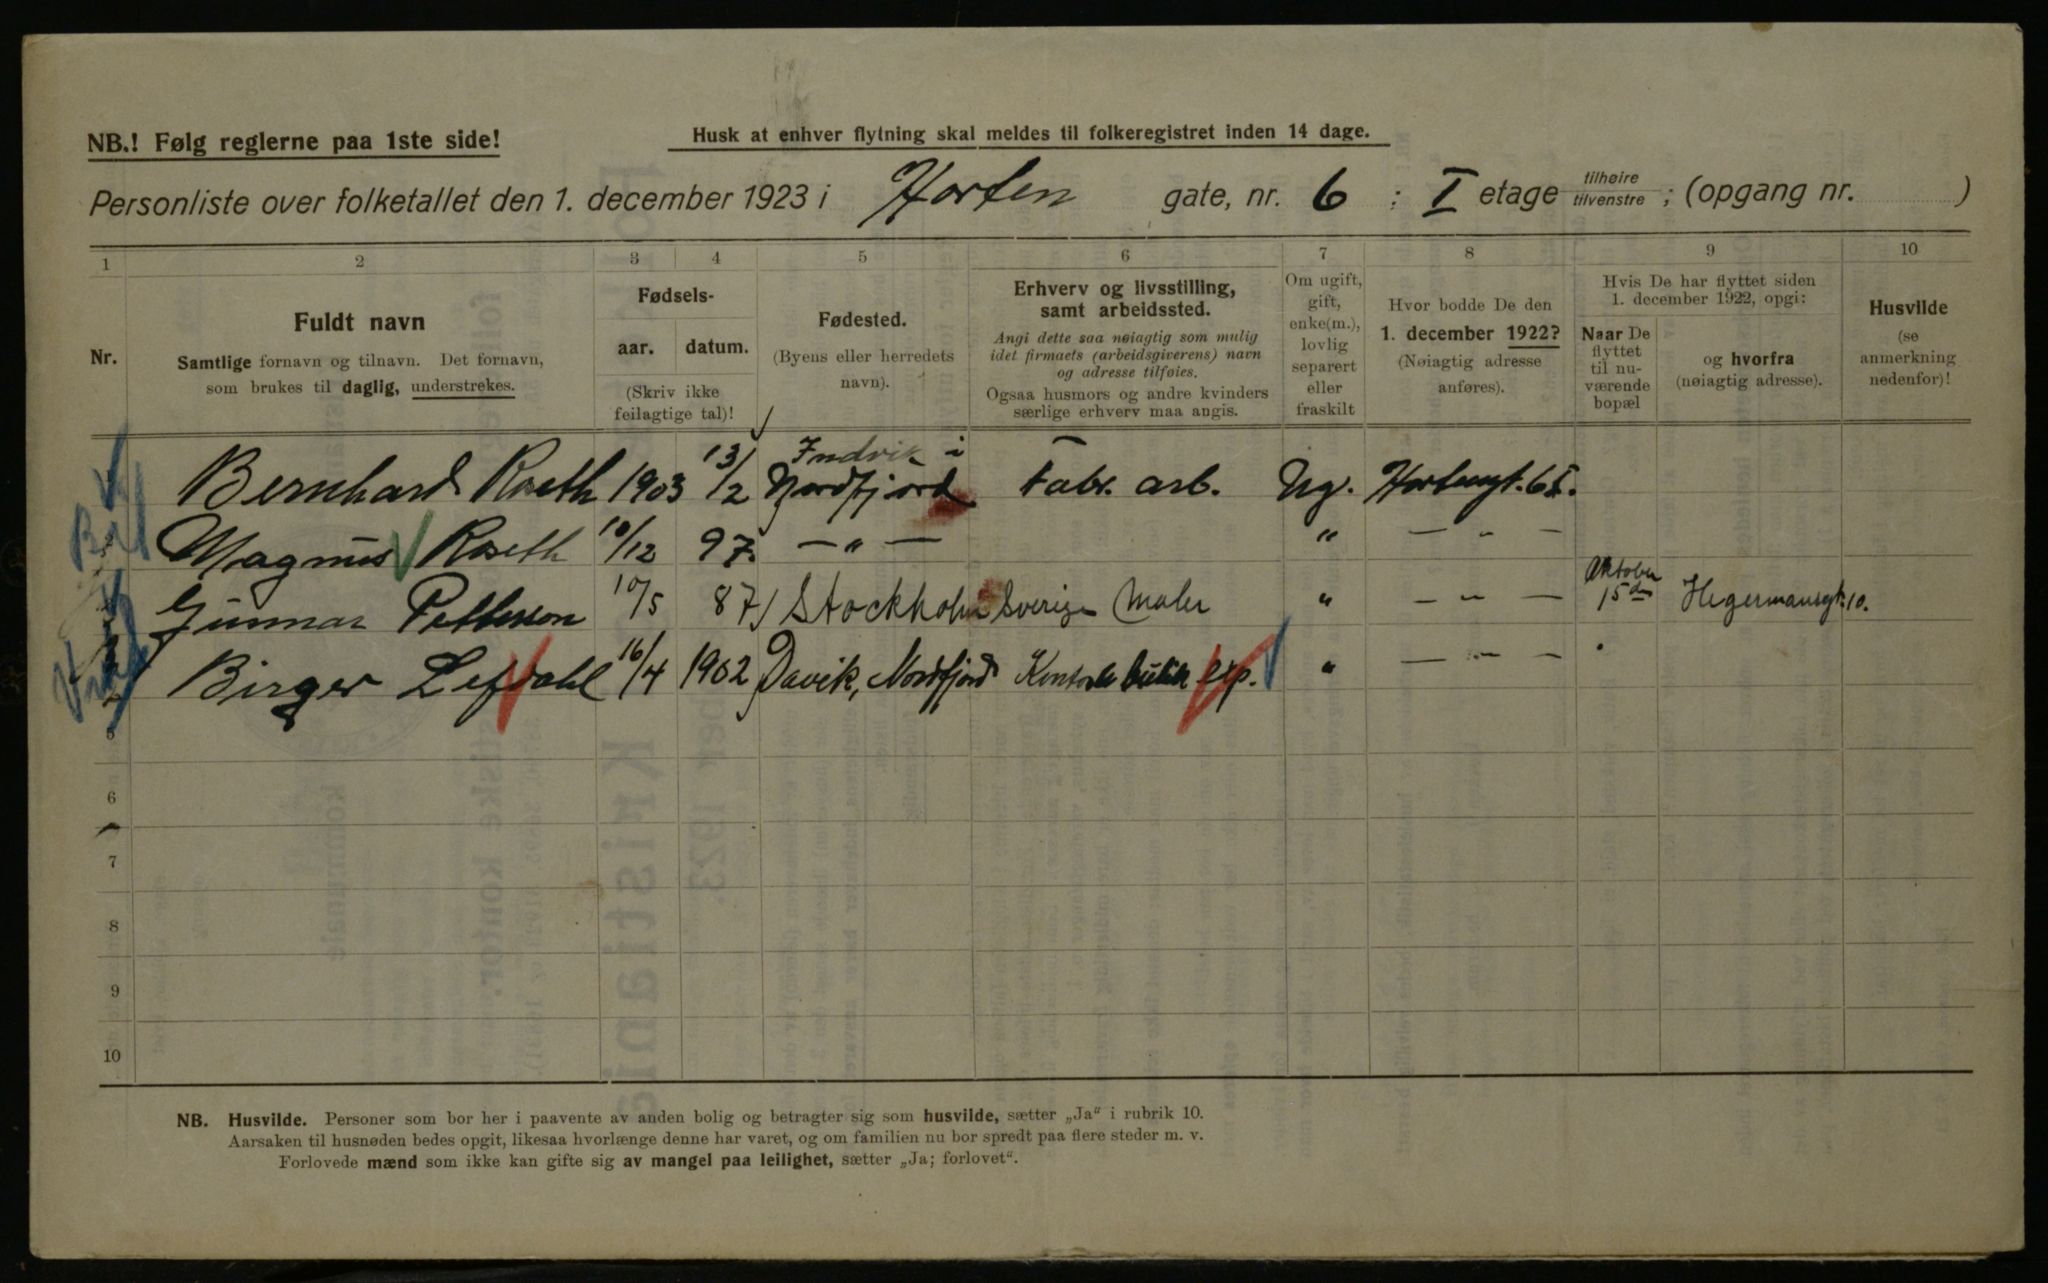 NB.! Følg reglerne paa 1ste side!
Husk at enhver flytning skal meldes til folkeregistret inden 14 dage.
Personliste over folketallet den 1. december 1923 i Horten gate, nr. 6 ; I etage tilhøire tilvenstre ; (opgang nr. )
1 2 3 4 5 6 7 8 9 10
Nr.
Fuldt navn
Samtlige fornavn og tilnavn. Det fornavn,
som brukes til daglig, understrekes.
Fødsels-
aar. datum.
(Skriv ikke
feilagtige tal)!
Fødested.
(Byens eller herredets
navn).
Erhverv og livsstilling,
samt arbeidssted.
Angi dette saa nøiagtig som mulig
idet firmaets (arbeidsgiverens) navn
og adresse tilføies.
Ogsaa husmors og andre kvinders
særlige erhverv maa angis.
Om ugift,
gift,
enke(m.),
lovlig
separert
eller
fraskilt
Hvor bodde De den
1. december 1922?
(Nøiagtig adresse
anføres).
Hvis De har flyttet siden
1. december 1922, opgi:
Naar De
flyttet
til nu-
værende
bopæl
og hvorfra
(nøiagtig adresse).
Husvilde
(se
anmerkning
nedenfor)!
Bernhard Roseth 1903 13/2 Indvik i Nordfjord Fabr. arb. Ug. Hortengt. 6 I.
Magnus Roseth 10/12 97. — „ — „ — „ —
Gunnar Petterson 10/5 87 Stockholm Sverige Maler „ — „ — Oktober 15den Hegermansgt. 10.
Birger Lefdahl 16/4 1902 Davik, Nordfjord exp. „ — „ —
5
6
7
8
9
10
NB. Husvilde. Personer som bor her i paavente av anden bolig og betragter sig som husvilde, sætter „Ja“ i rubrik 10.
Aarsaken til husnøden bedes opgit, likesaa hvorlænge denne har varet, og om familien nu bor spredt paa flere steder m. v.
Forlovede mænd som ikke kan gifte sig av mangel paa leilighet, sætter „Ja; forlovet“.